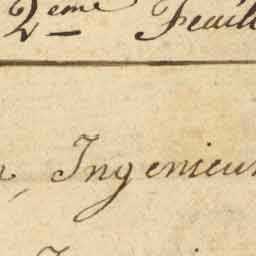 2eme Feuill
, Ingenieur